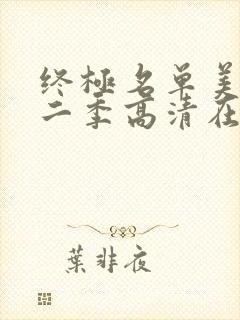 终極名单美
二季高清在
葉非夜